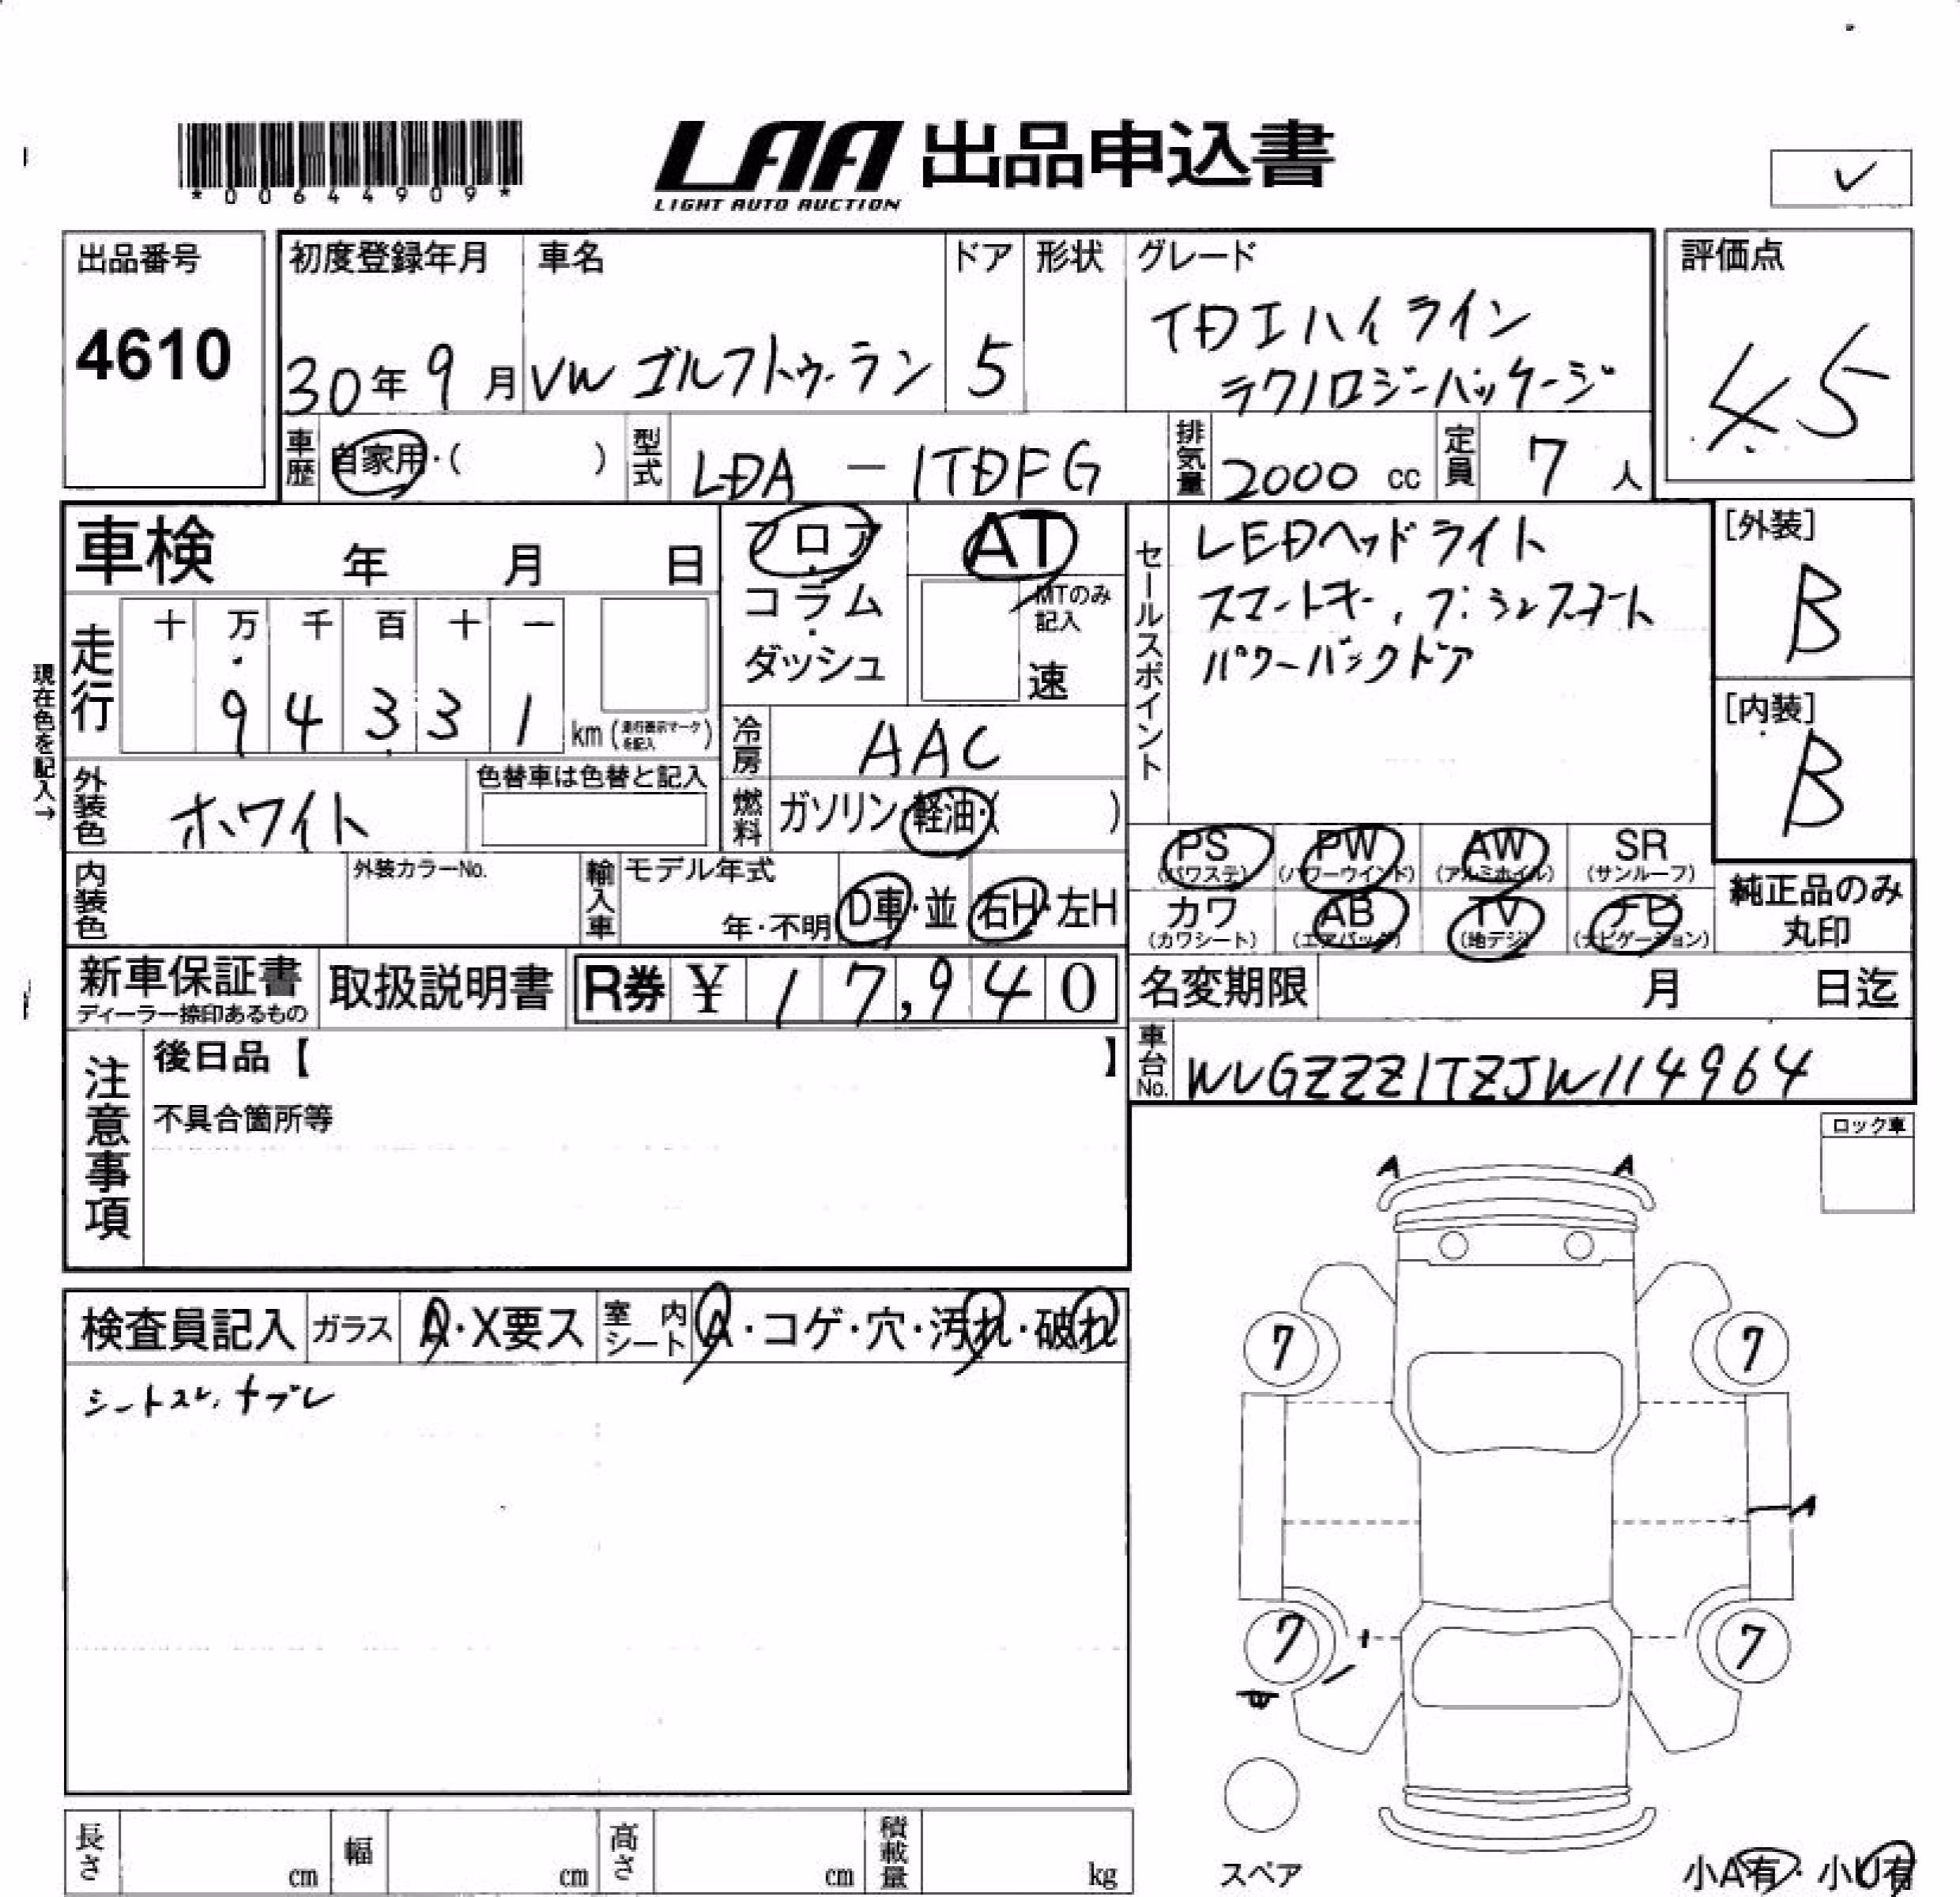 *00644909*
LAA 出品申込書
LIGHT AUTO AUCTION
✓
出品番号
4610
初度登録年月
30年9月
車名
VW ゴルフトゥーラン
ドア
5
形状
グレード
TDIハイライン
テクノロジーパッケージ
評価点
4.5
車歴
自家用・( )
型式
LDA-1TDFG
排気量
2000 cc
定員
7人
車検 年 月 日
フロア・コラム・ダッシュ
AT
MTのみ記入
速
セールスポイント
LEDヘッドライト
スマートキー, プッシュスタート
パワーバックドア
[外装]
B
[内装]
B
現在色を記入→
走行
十 万 千 百 十 一
9 4 3 3 1
km (走行表示マークを記入)
冷房
AAC
外装色
ホワイト
色替車は色替と記入
燃料
ガソリン・軽油・( )
PS (パワステ)
PW (パワーウインド)
AW (アルミホイル)
SR (サンルーフ)
カワ (カワシート)
AB (エアバッグ)
TV (地デジ)
ナビ (ナビゲーション)
純正品のみ丸印
内装色
外装カラーNo.
輸入車
モデル年式
年・不明
D車・並
右H・左H
新車保証書
ディーラー捺印あるもの
取扱説明書
R券 ¥ 17,940
名変期限 月 日迄
車台No.
WVGZZZ1TZJW114964
注意事項
後日品【 】
不具合箇所等
ロック車
検査員記入
ガラス
A・X要ス
室内シート
A・コゲ・穴・汚れ・破れ
シートスレ,
A A
7 7
A
7 7
スペア
小A有・小U有
長さ cm
幅 cm
高さ cm
積載量 kg